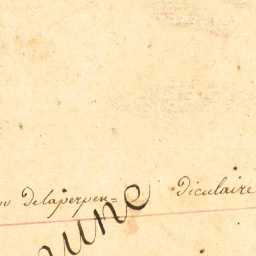 delaperpen= diculaire
une